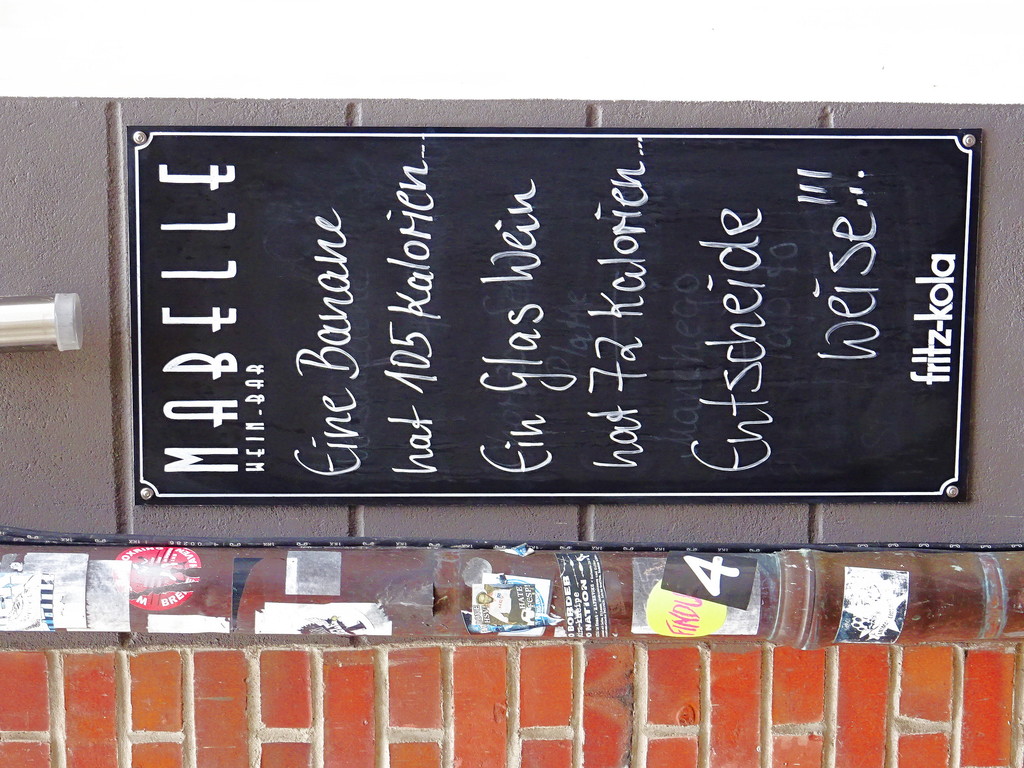 MABELLE
WEIN-BAR
Eine Banane
hat 105 Kalorien...
Ein Glas Wein
hat 72 Kalorien...
Entscheide
weise!!!
fritz-kola
BORDER
NATION
HATE
FINDUS
4